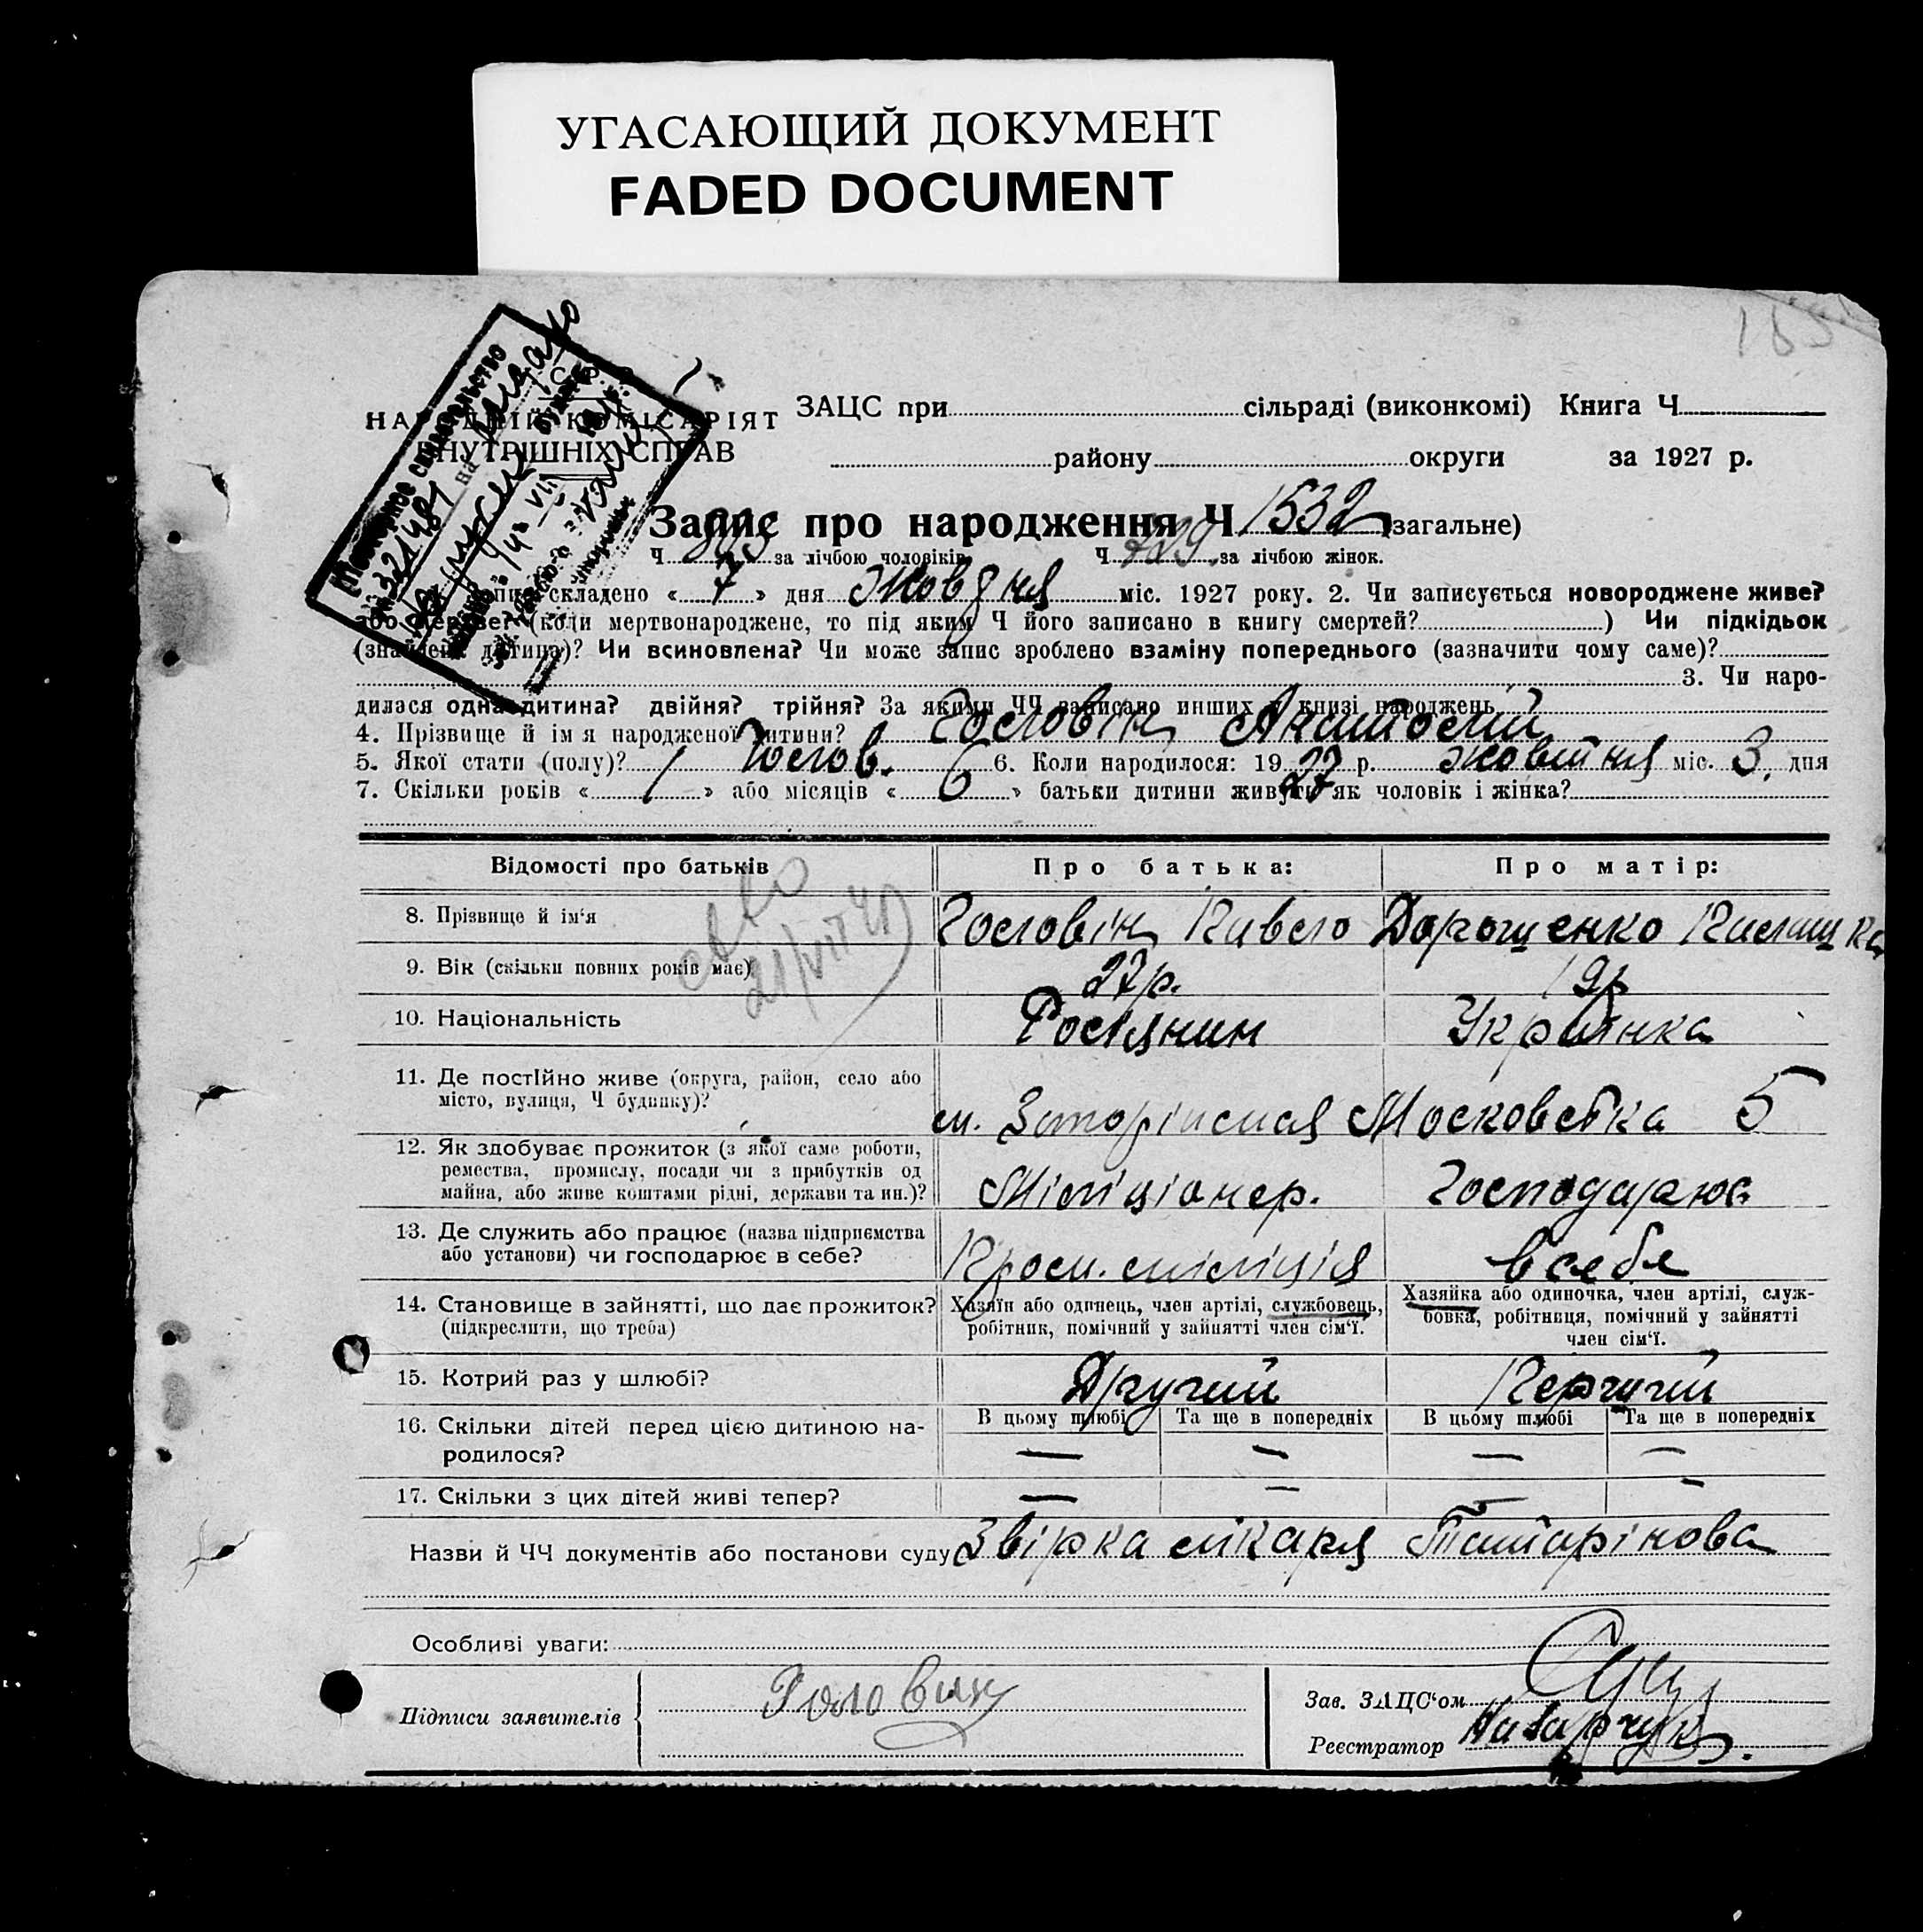 УГАСАЮЩИЙ ДОКУМЕНТ
FADED DOCUMENT
НАРОДНІЙ КОМІСАРІЯТ
ВНУТРІШНІХ СПРАВ
ЗАЦС при сільраді (виконкомі) Книга Ч.
району округи за 1927 р.
Повторное свидетельство
Запис про народження Ч 1532 (загальне)
Ч 803 за лічбою чоловіків Ч 729 за лічбою жінок.
складено « 7 » дня Жовтня міс. 1927 року. 2. Чи записується новороджене живе?
або мертве? (коли мертвонароджене, то під яким Ч його записано в книгу смертей? ) Чи підкідьок
(знайдена дитина)? Чи всиновлена? Чи може запис зроблено взаміну попереднього (зазначити чому саме)?
3. Чи наро-
дилася одна дитина? двійня? трійня? За якими ЧЧ записано инших в книзі народжень
4. Прізвище й ім'я народженої дитини? Головін Анатолій
5. Якої стати (полу)? Чолов. 6. Коли народилося: 19 27 р. жовтня міс. 3. дня
7. Скільки років « 1 » або місяців « 6 » батьки дитини живуть як чоловік і жінка?
Відомості про батьків Про батька: Про матір:
8. Прізвище й ім'я Головін Павло Дорошенко
9. Вік (скільки повних років має) 27р. 19р
10. Національність Росіянин Українка
11. Де постійно живе (округа, район, село або
місто, вулиця, Ч будинку)?
м. Запоріжжя Московська 5
12. Як здобуває прожиток (з якої саме роботи,
ремества, промислу, посади чи з прибутків од
майна, або живе коштами рідні, держави та ин.)?
Міліціонер. Господарює
13. Де служить або працює (назва підприємства
або установи) чи господарює в себе?
міліція в себе
14. Становище в зайнятті, що дає прожиток?
(підкреслити, що треба)
Хазяїн або одинець, член артілі, службовець,
робітник, помічний у зайнятті член сім'ї.
Хазяйка або одиночка, член артілі, служ-
бовка, робітниця, помічний у зайнятті
член сім'ї.
15. Котрий раз у шлюбі? Другий Перший
16. Скільки дітей перед цією дитиною на-
родилося?
В цьому шлюбі Та ще в попередніх В цьому шлюбі Та ще в попередніх
— — — —
17. Скільки з цих дітей живі тепер? — — — —
Назви й ЧЧ документів або постанови суду Звірка лікаря Татарінова
Особливі уваги:
Підписи заявителів Головин
Зав. ЗАЦС'ом
Реєстратор Назарчук